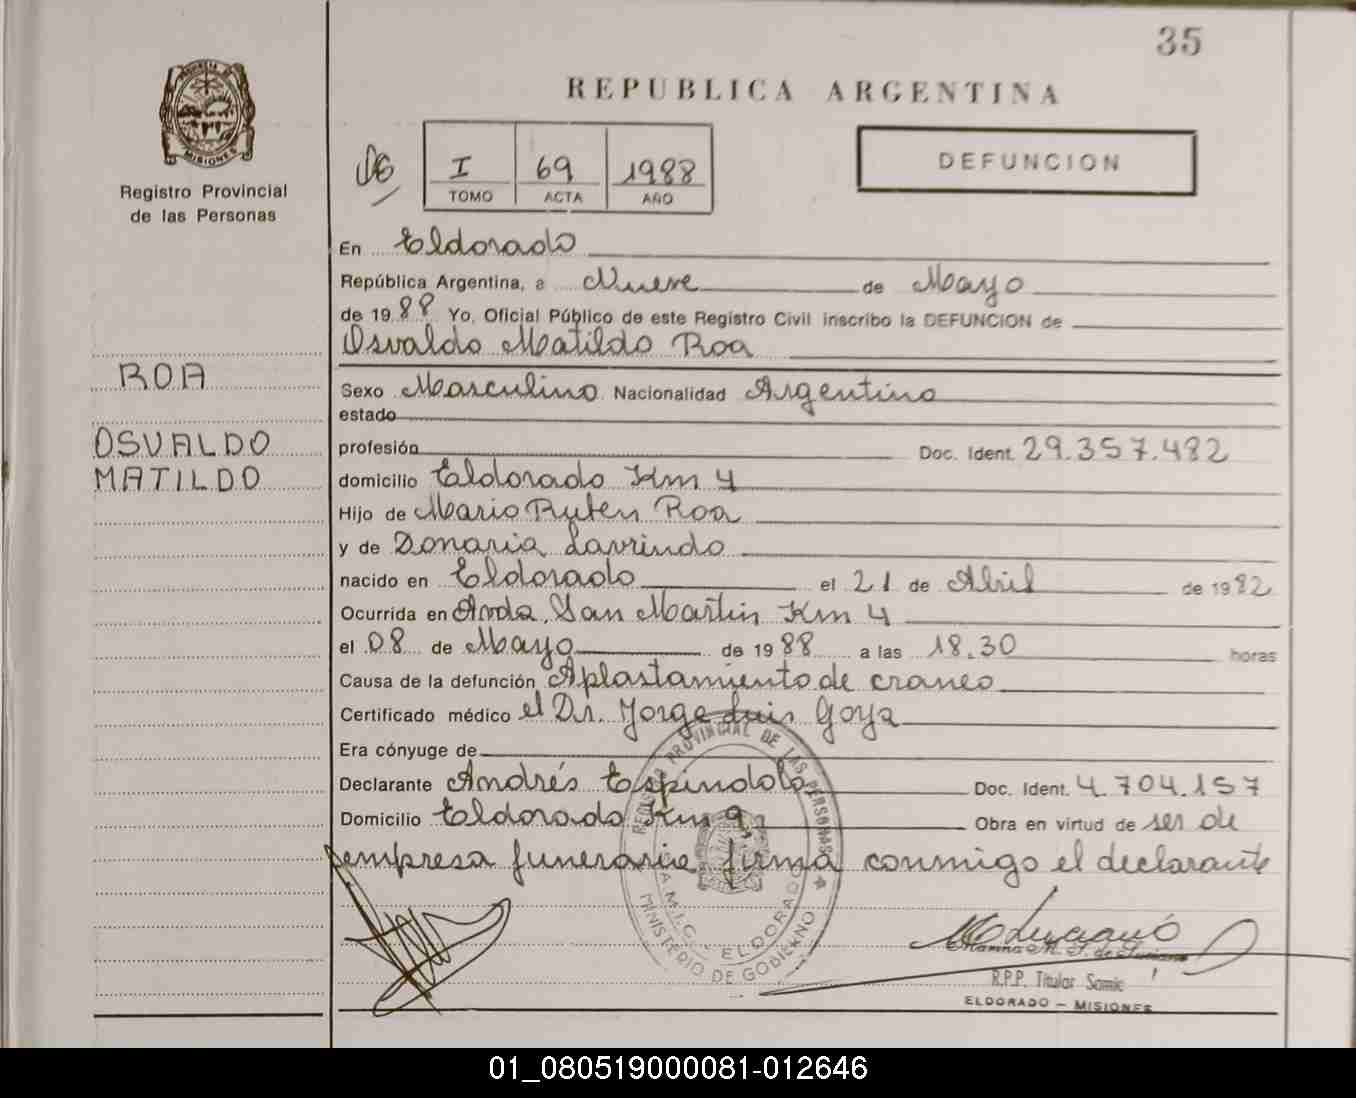 35
REPUBLICA ARGENTINA
PROVINCIA DE MISIONES
Registro Provincial
de las Personas
I 69 1988
TOMO ACTA AÑO
DEFUNCION
En Eldorado
República Argentina, a Nueve de Mayo
de 1988 Yo, Oficial Público de este Registro Civil inscribo la DEFUNCION de
Osvaldo Matildo Roa
ROA
OSVALDO
MATILDO
Sexo Masculino Nacionalidad Argentino
estado
profesión Doc. Ident. 29.357.482
domicilio Eldorado Km 4
Hijo de Mario Ruben Roa
y de Donaria Lavrindo
nacido en Eldorado el 21 de Abril de 1982
Ocurrida en Avda. San Martin Km 4
el 08 de Mayo de 1988 a las 18.30 horas
Causa de la defunción Aplastamiento de craneo
Certificado médico el Dr. Jorge Luis Goya
Era cónyuge de
Declarante Andrés Espindola Doc. Ident. 4.704.157
Domicilio Eldorado Km 9, Obra en virtud de ser de
empresa funeraria firma conmigo el declarante
REGISTRO PROVINCIAL DE LAS PERSONAS
S.A.M.I.C. - ELDORADO
MINISTERIO DE GOBIERNO
R.P.P. Titular Samic
ELDORADO - MISIONES
01_080519000081-012646